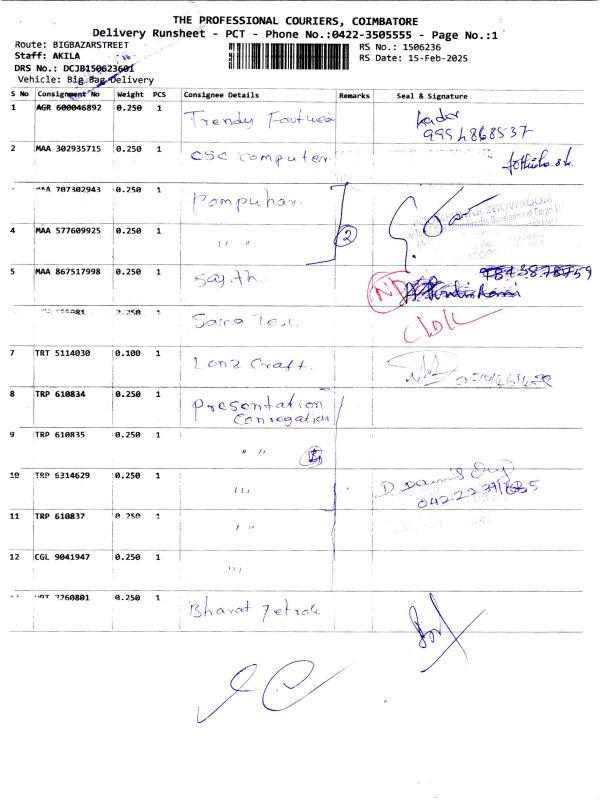 THE PROFESSIONAL COURIERS, COIMBATORE
Delivery Runsheet - PCT - Phone No.:0422-3505555 - Page No.:1
Route: BIGBAZARSTREET
RS No.: 1506236
Staff: AKILA
RS Date: 15-Feb-2025
DRS No.: DCJB150623601
Vehicle: Big Bag Delivery
S No Consignment No Weight PCS Consignee Details Remarks Seal & Signature
1 AGR 600046892 0.250 1 Trendy Footwea Kader
9994868537
2 MAA 302935715 0.250 1 CSC Computer
MAA 707302943 0.250 1 Pompuhar
SHOWROOM
4 MAA 577609925 0.250 1 " " 2
5 MAA 867517998 0.250 1 ND
0.250 1 Saira Tex.
7 TRT 5114030 0.100 1 Lenz Craft.
8 TRP 610834 0.250 1 Presentation
Conregation
9 TRP 610835 0.250 1 " "
10 TRP 6314629 0.250 1 " "
11 TRP 610837 0.250 1 " "
12 CGL 9041947 0.250 1 " "
0.250 1 Bharat Petrol